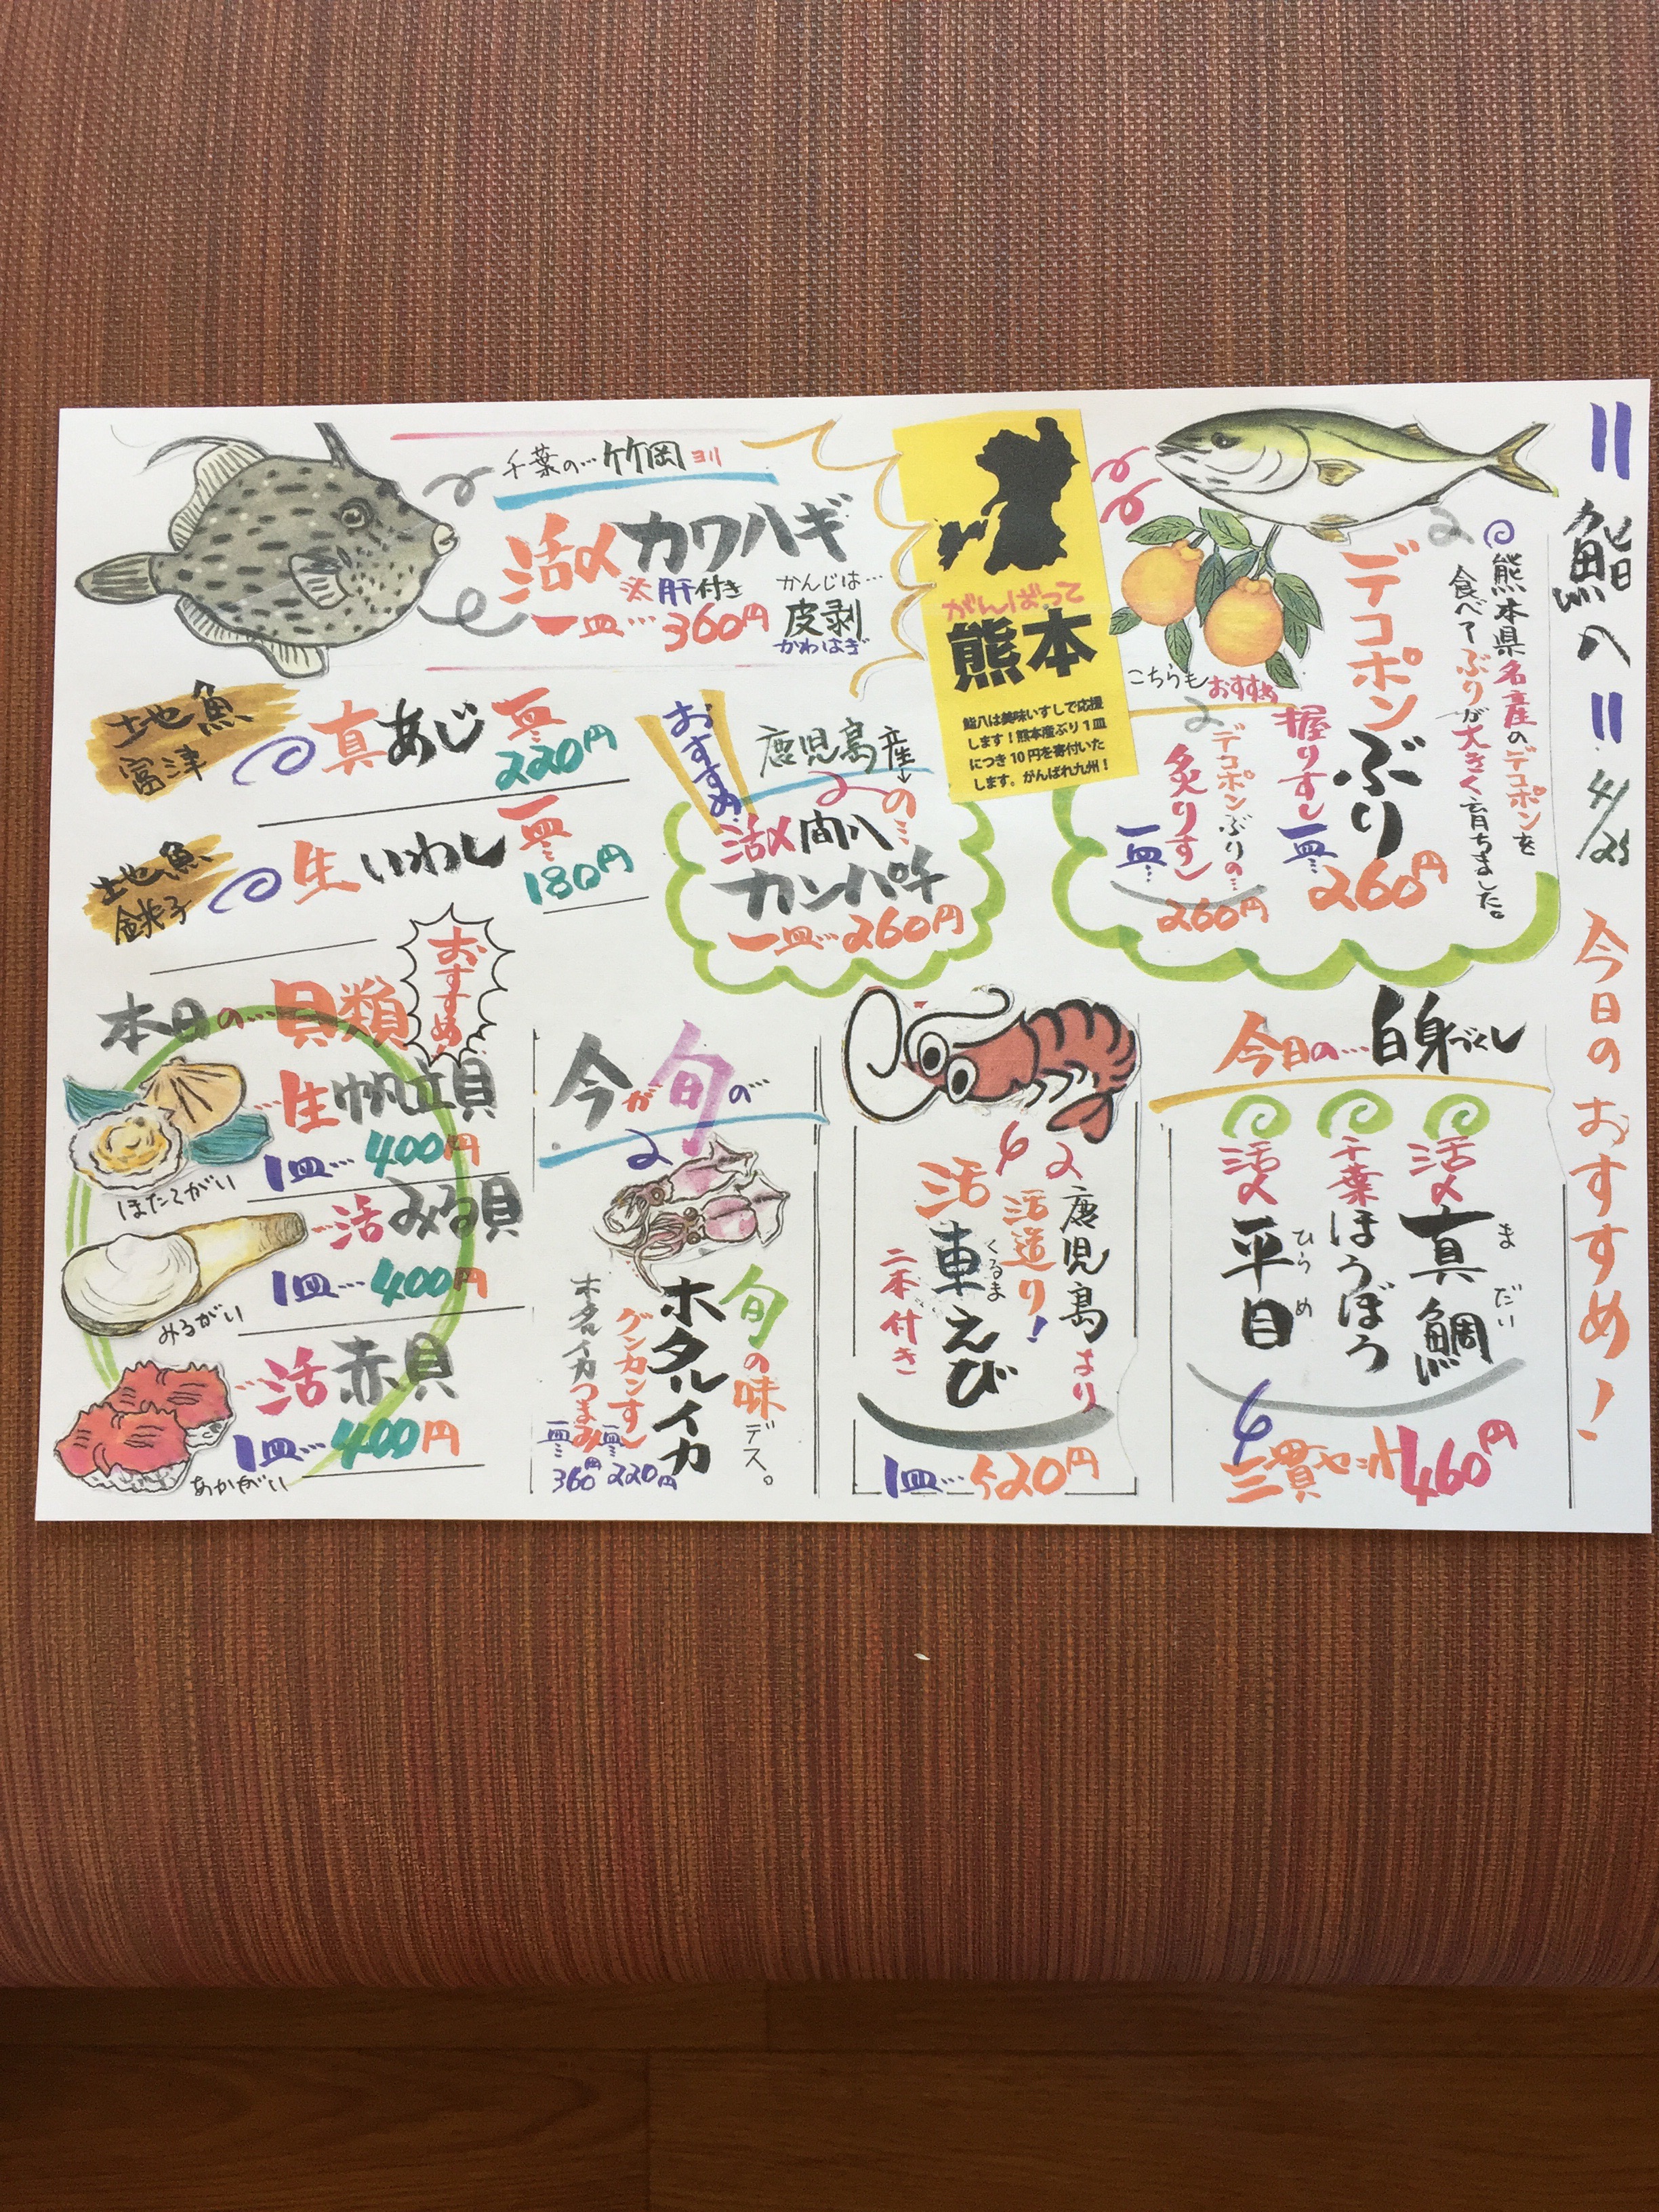 鮨八
4/25
今日のおすすめ!
熊本県名産のデコポンを
食べてぶりが大きく育ちました。
デコポンぶり
握りずし
一皿…
260円
こちらもおすすめ
デコポンぶりの…
炙りずし
一皿…
260円
がんばって
熊本
鮨八は美味いすしで応援
します!熊本産ぶり1皿
につき10円を寄付いた
します。がんばれ九州!
千葉の…竹岡ヨリ
活〆カワハギ
※肝付き
一皿…360円
かんじは…
皮剥
かわはぎ
地魚
富津
真あじ
一皿…
220円
地魚
銚子
生いわし
一皿…
180円
おすすめ
鹿児島産の…
活〆間八
カンパチ
一皿…260円
今日の…白身づくし
活〆真鯛
まだい
千葉ほうぼう
活〆平目
ひらめ
三貫セット460円
鹿児島より
活造り!
活車えび
くるま
二本付き
1皿…520円
今が旬の…
旬の味デス。
ホタルイカ
グンカンずし
一皿…
220円
ホタルイカつまみ
一皿…
360円
本日の…貝類
おすすめ!
生帆立貝
1皿…400円
ほたてがい
活みる貝
1皿…400円
みるがい
活赤貝
1皿…400円
あかがい